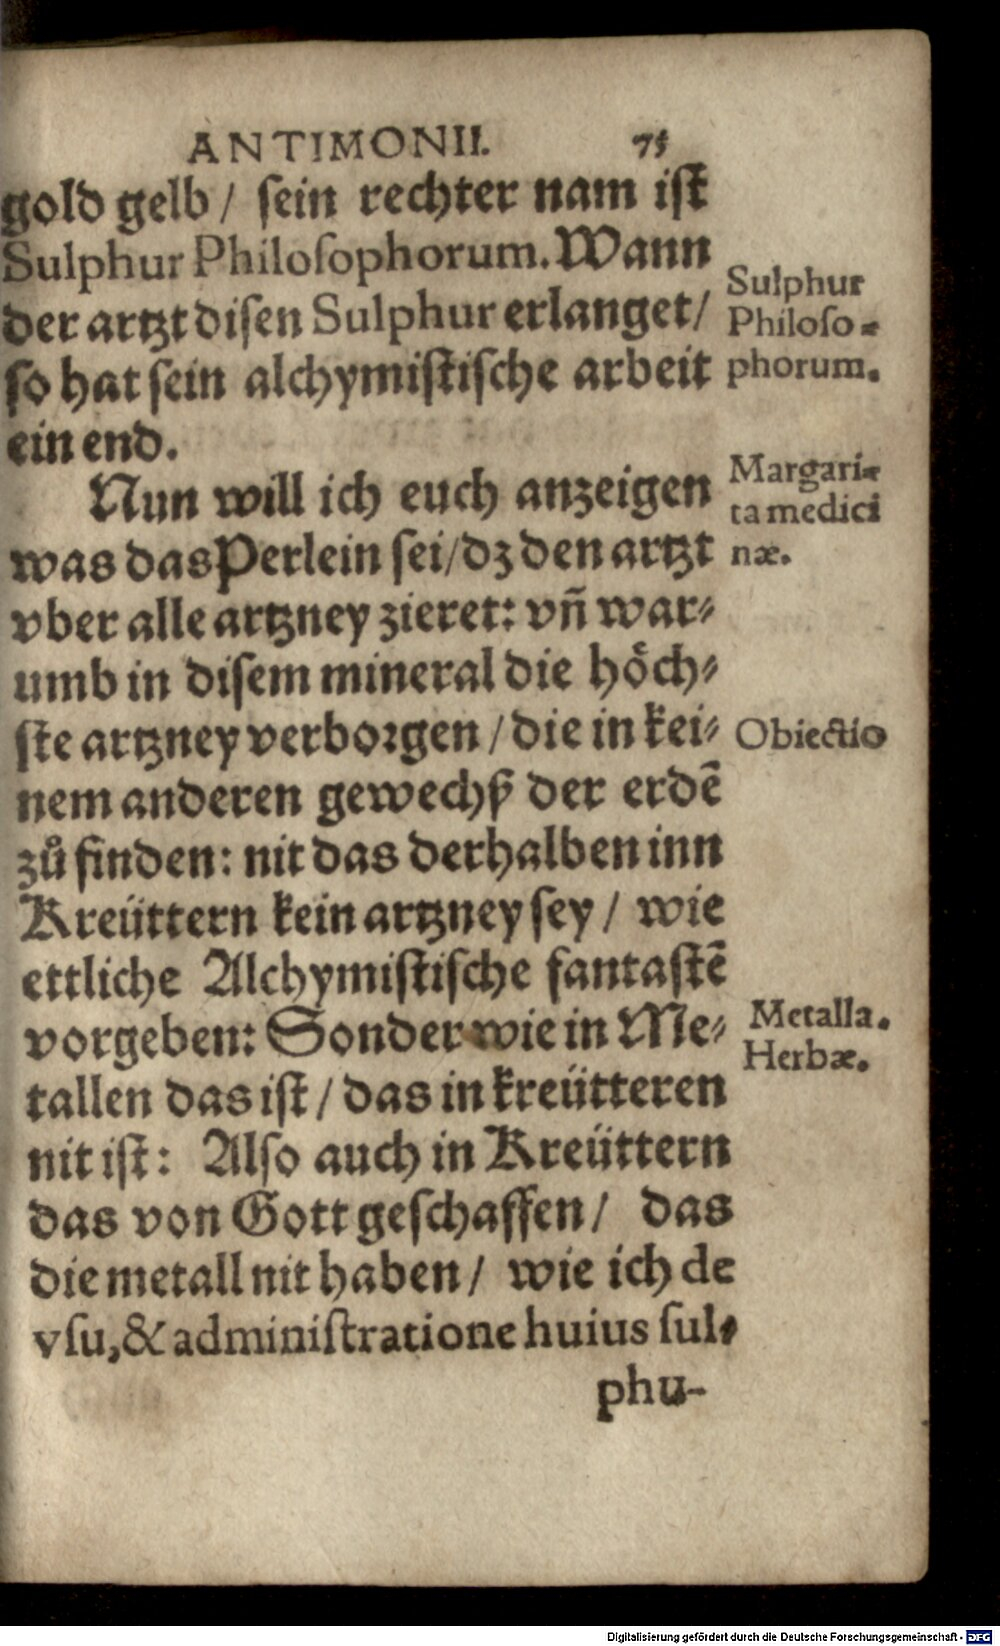 ANTIMONII. 75
gold gelb / ſein rechter nam iſt
Sulphur Philoſophorum. Wann
der artzt diſen Sulphur erlanget /
ſo hat ſein alchymiſtiſche arbeit
ein end.
Nun will ich euch anzeigen
was das Perlein ſei / dz den artzt
vber alle artzney zieret: vñ war⸗
umb in diſem mineral die hoͤch⸗
ſte artzney verborgen / die in kei⸗
nem anderen gewechß der erdē
zů finden: nit das derhalben inn
Kreüttern kein artzney ſey / wie
ettliche Alchymiſtiſche fantaſtē
vorgeben: Sonder wie in Me⸗
tallen das iſt / das in kreütteren
nit iſt: Alſo auch in Kreüttern
das von Gott geſchaffen / das
die metall nit haben / wie ich de
vſu, & adminiſtratione huius ſul-
phu-
Sulphur
Philoſo-
phorum.
Margari-
ta medici
næ.
Obiectio
Metalla.
Herbæ.
Digitalisierung gefördert durch die Deutsche Forschungsgemeinschaft - DFG